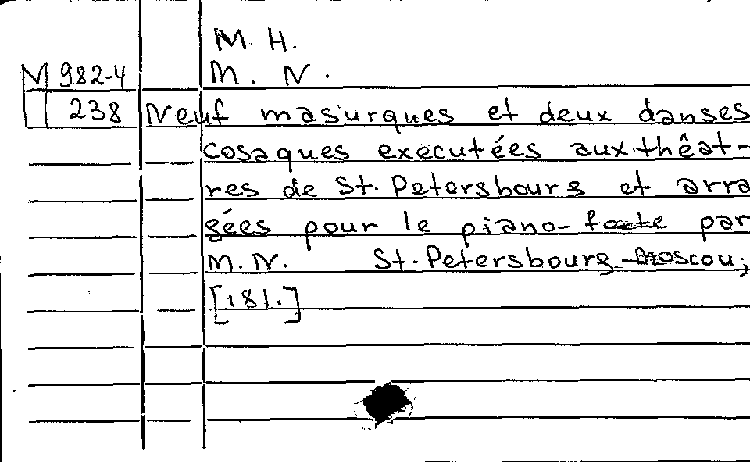 М. Н.
М 982-4 M. N.
238 Neuf masurques et deux danses
cosaques executées aux théat-
res de St. Petersbourg et arra
gées pour le piano-forte par
M. N. St.-Petersbourg-Moscou,
[181.]